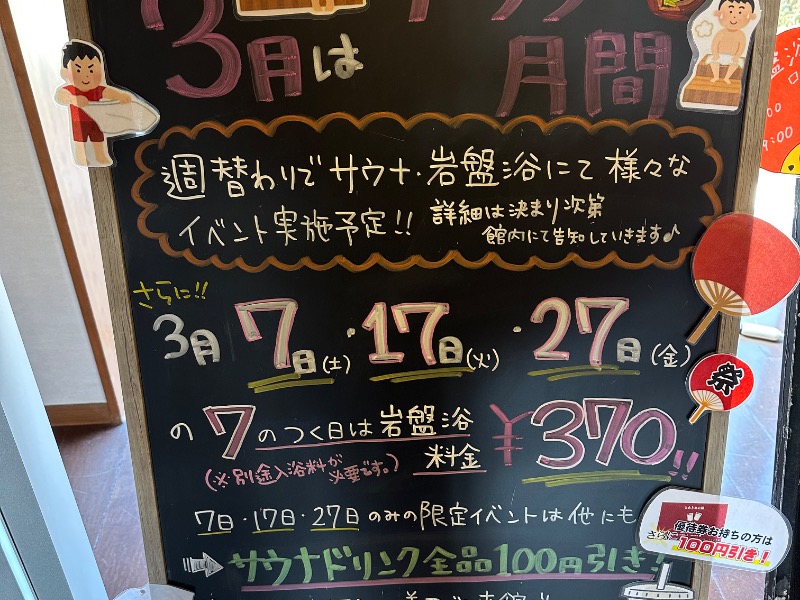 3月は
月間
週替わりでサウナ・岩盤浴にて様々な
イベント実施予定!! 詳細は決まり次第
館内にて告知していきます♪
さらに!!
3月7日(土)・17日(火)・27日(金)
の7のつく日は岩盤浴
料金 ¥370!!
(※別途入浴料が
必要です。)
祭
7日・17日・27日のみの限定イベントは他にも
サウナドリンク全品100円引き!
優待券お持ちの方は
さらに100円引き!